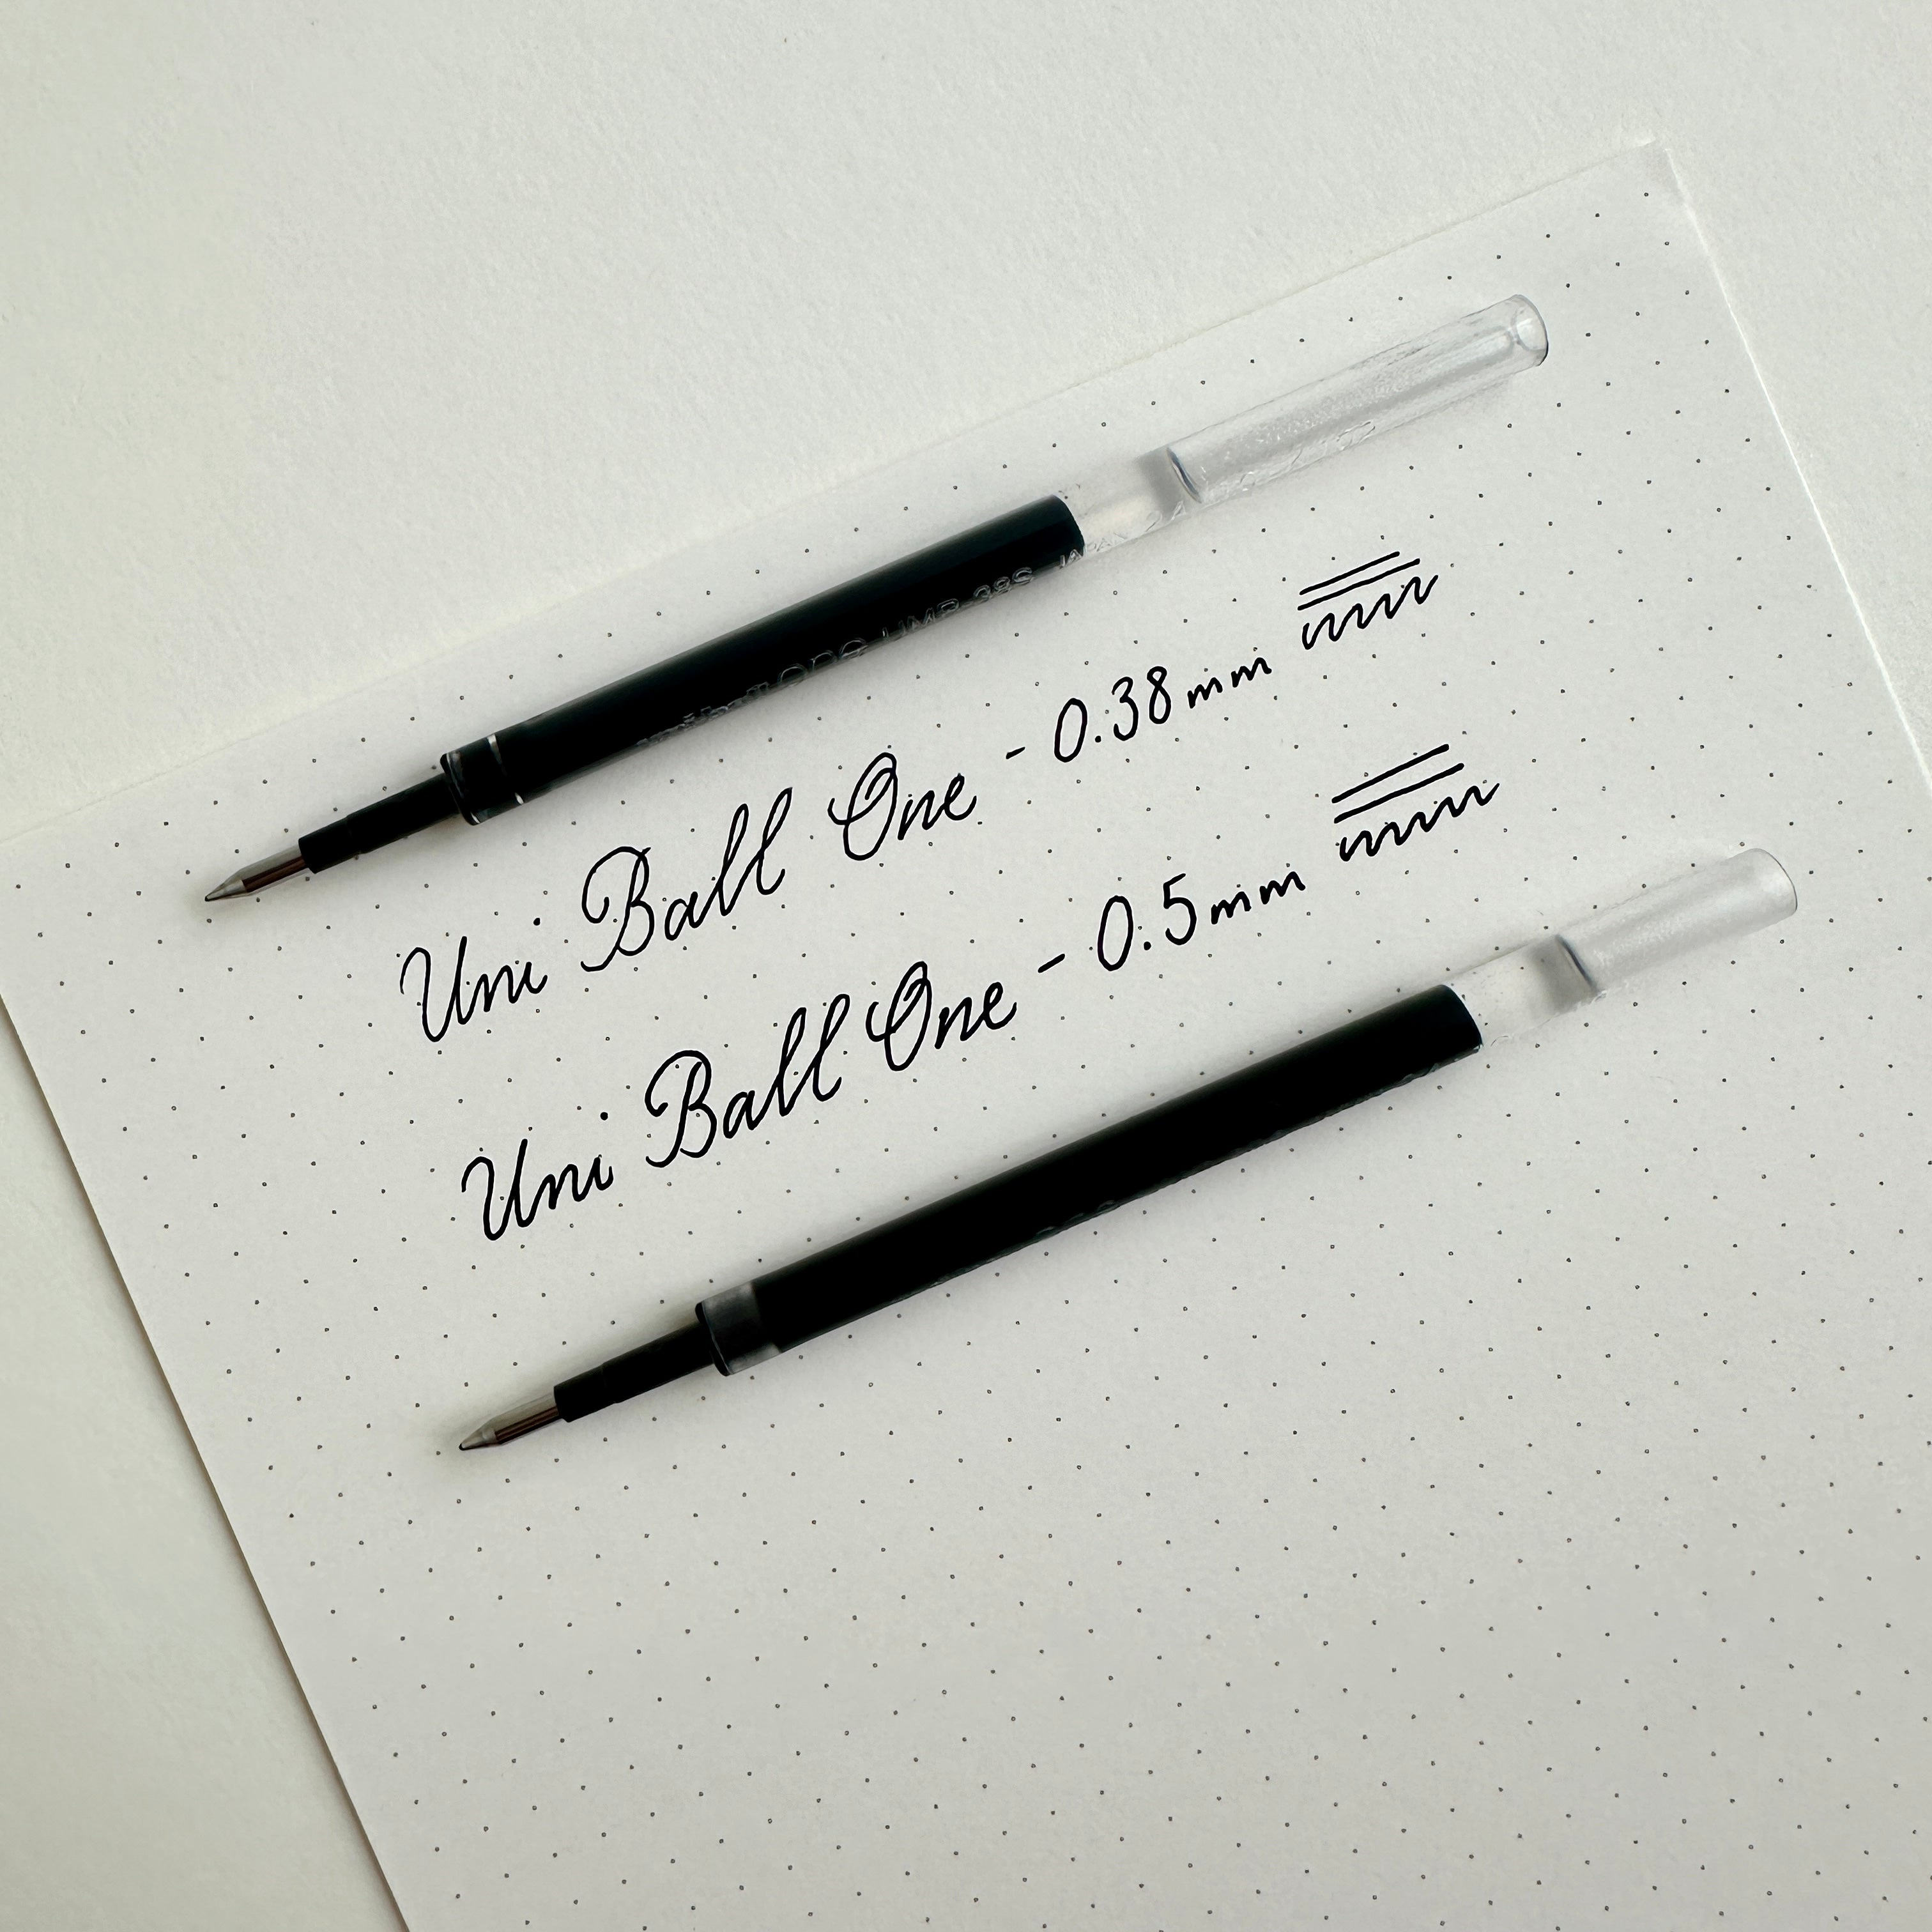 uni-ball One UMR-38S JAPAN
Uni Ball One - 0.38mm
Uni Ball One - 0.5mm